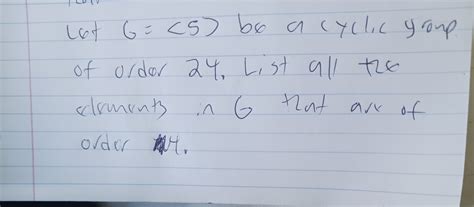 Let G = <5> be a cyclic group
of order 24. List all the
elements in G that are of
order 4.